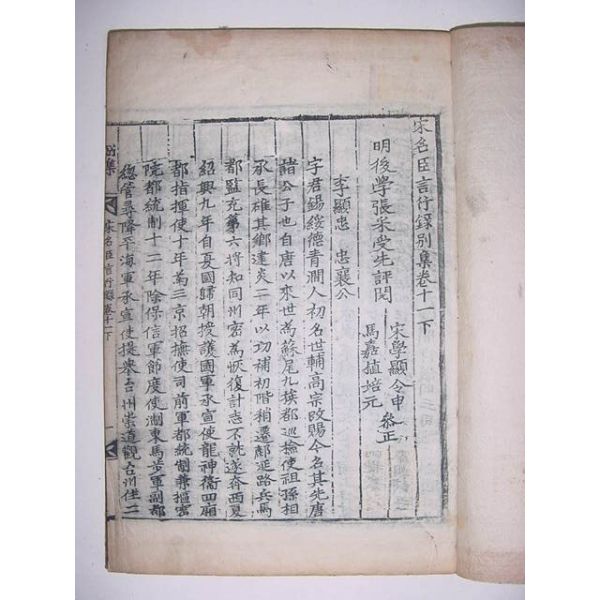 宋名臣言行錄別集卷十一下
明後學張采受先評閱
宋學顯令申
馬嘉植培元 叅正
李顯忠 忠襄公
字君錫綏德青澗人初名世輔高宗改賜今名其先唐
諸公子也自唐以來世為蘇尾九族都巡撫使祖孫相
承長雄其鄉建炎二年以功補初階稍遷鄜延路兵馬
都監充第六將知同州密為恢復計志不就遂奔西夏
紹興九年自夏國歸朝授護國軍承宣使龍神衛四廂
都指揮使十年為三京招撫使司前軍都統制兼樞密
院都統制十二年除保信軍節度使浙東馬步軍副都
總管尋降平海軍承宣使提舉台州崇道觀台州住二
別集
宋名臣言行錄卷十一下
一